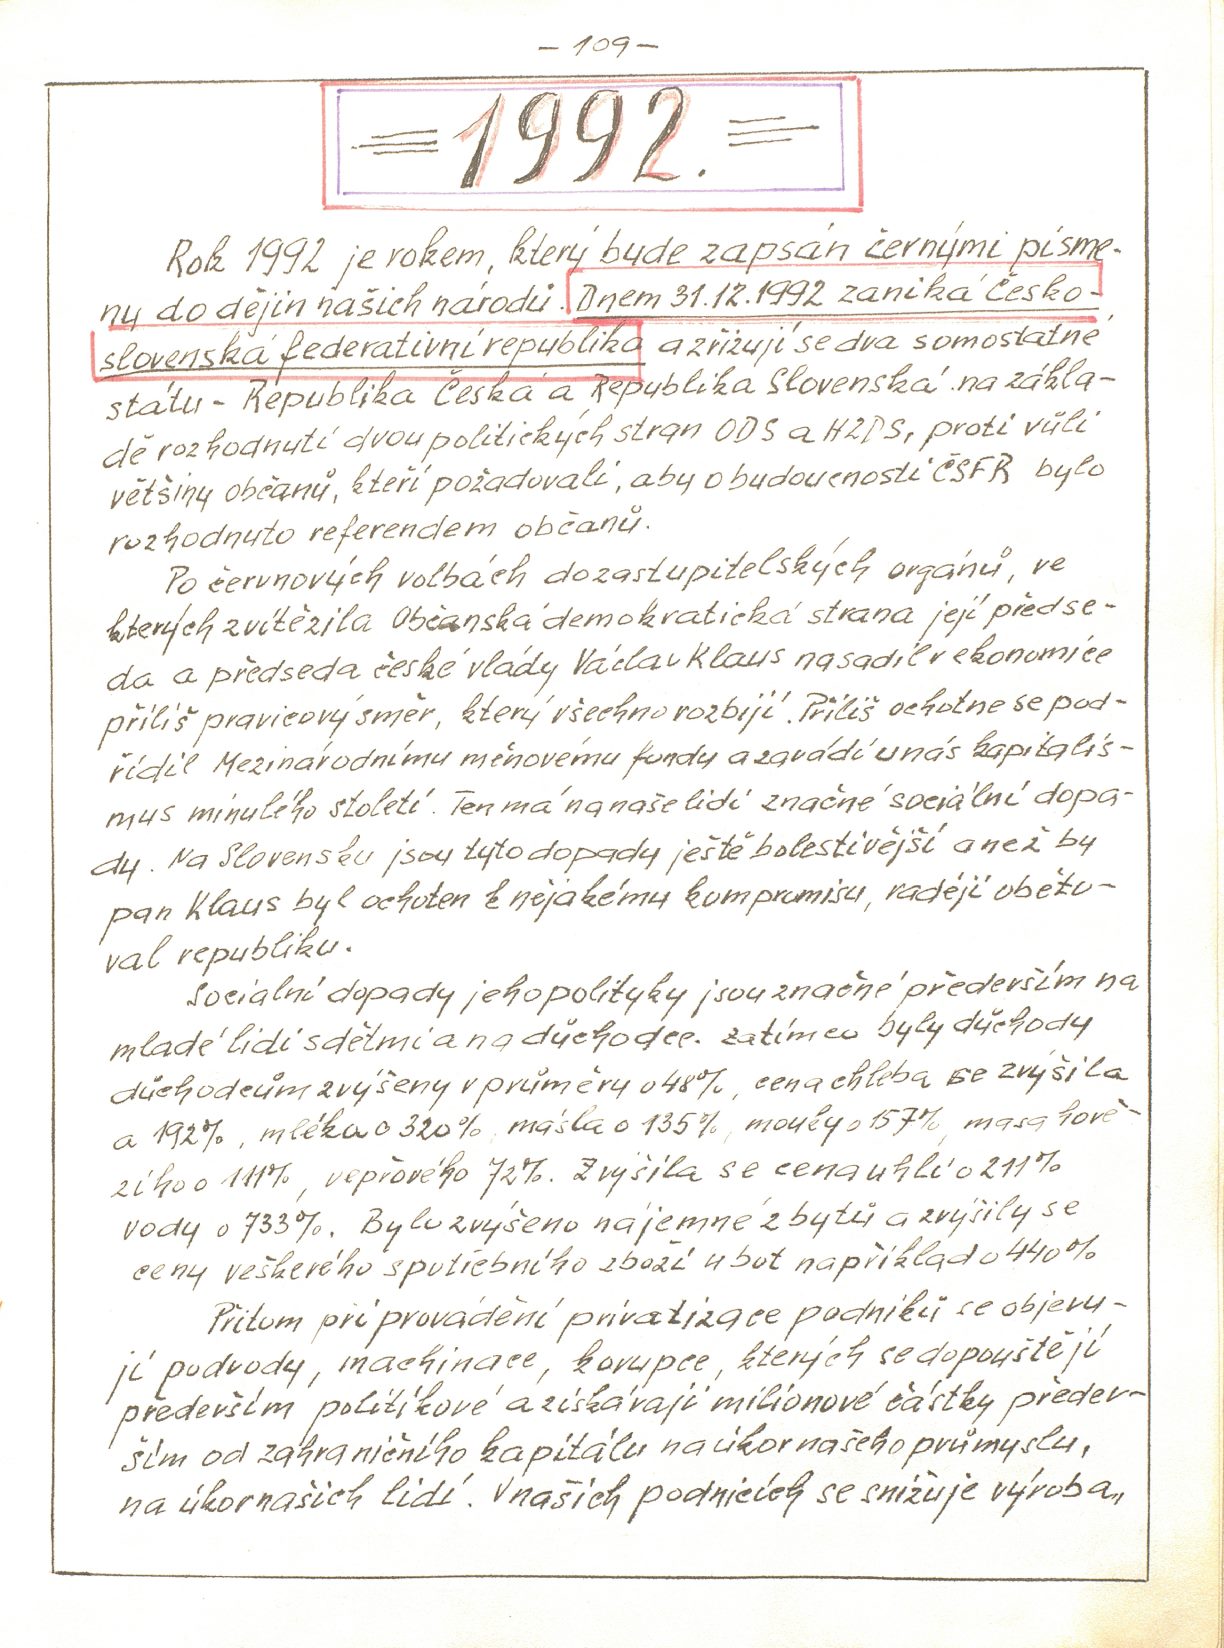 - 109 -
= 1992. =
Rok 1992 je rokem, který bude zapsán černými písme-
ny do dějin našich národů. Dnem 31.12.1992 zaniká Česko-
slovenská federativní republika a zřizují se dva somostatné
státy - Republika Česká a Republika Slovenská na zákla-
dě rozhodnutí dvou politických stran ODS a HZDS, proti vůli
většiny občanů, kteří požadovali, aby o budoucnosti ČSFR bylo
rozhodnuto referendem občanů.
Po červnových volbách do zastupitelských orgánů, ve
kterých zvítězila Občanská demokratická strana její předse-
da a předseda české vlády Václav Klaus nasadil v ekonomice
příliš pravicový směr, který všechno rozbíjí. Příliš ochotne se pod-
řídil Mezinárodnímu měnovému fondu a zavádí u nás kapitalis-
mus minulého století. Ten má na naše lidi značné sociální dopa-
dy. Na Slovensku jsou tyto dopady ještě bolestivější a než by
pan Klaus byl ochoten k nějakému kompromisu, raději oběto-
val republiku.
Socialní dopady jeho polityky jsou značné především na
mladé lidi s dětmi a na důchodce. Zatím co byly důchody
důchodcům zvýšeny v průměru o 48%, cena chleba se zvýšila
a 192%, mléka o 320%, másla o 135%, mouky o 157%, masa hově-
zího o 111%, vepřového 72%. Zvýšila se cena uhlí o 211%
vody o 733%. Bylo zvýšeno nájemné z bytů a zvýšily se
ceny veškerého spotřebního zboží u bot například o 440%
Přitom při provádění privatizace podniků se objevu-
jí podvody, machinace, korupce, kterých se dopouštějí
především politikové a získávají milionové částky předev-
ším od zahraničního kapitálu na úkor našeho průmyslu,
na úkor našich lidí. V našich podnicích se snižuje výroba,,